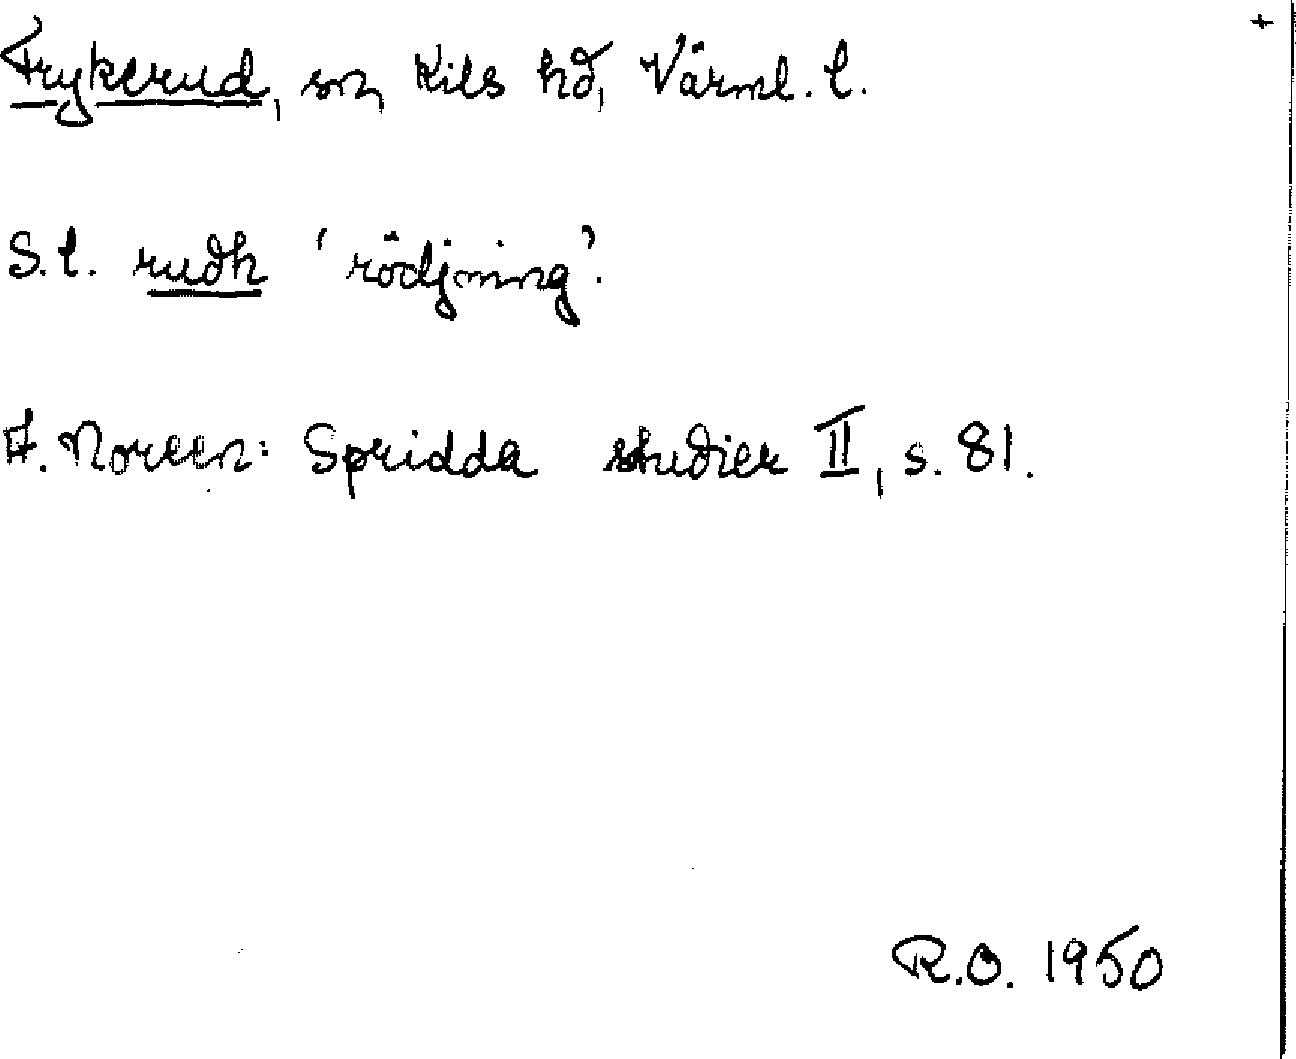 +
Frykerud, sn, Kils hd, Värml. l.
S.l. rudh 'rödjning'.
A. Noreen: Spridda studier II, s. 81.
R.O. 1950